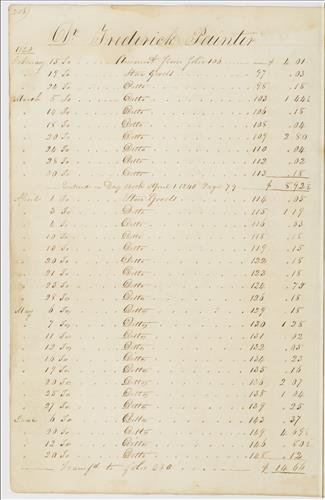 Dr Frederick Painter
February 15 To Amount from folio 106 $ 4 01
" 19 To Star Goods 97 .03
" 22 To Ditto 98 .18
March 5 To Ditto 103 1 44½
" 14 To Ditto 106 .18
" 18 To Ditto 108 .04
" 20 To Ditto 109 2 80
" 24 To Ditto 110 .04
" 28 To Ditto 112 .02
" 30 To Ditto 113 .18
Entered in Day Book April 1 1840 Page 79 $ 8 92½
April 1 To Star Goods 114 .05
" 3 To Ditto 115 1 19
" 4 To Ditto 116 .03
" 10 To Ditto 118
" 14 To Ditto 119 .15
" 20 To Ditto 122 .18
" 21 To Ditto 123 .18
" 23 To Ditto 124 .72
" 28 To Ditto 126 .18
May 6 To Ditto 129 .18
" 7 To Ditto 130 1 28
" 11 To Ditto 131 .02
" 13 To Ditto 132 .03
" 16 To Ditto 134 .23
" 19 To Ditto 135 .16
" 20 To Ditto 136 2 07
" 25 To Ditto 138 1 24
" 27 To Ditto 139 .25
June 6 To Ditto 143 .37
" 20 To Ditto 149
" 12 To Ditto 146
" 20 To Ditto 148 .12
Transf'd to folio 230 $ 14.66